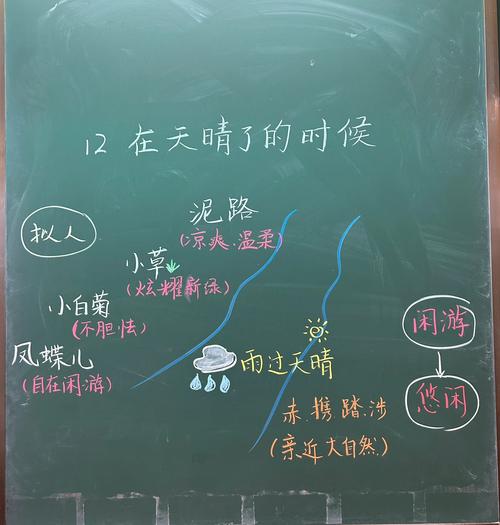 12 在天晴了的时候
拟人
泥路
(凉爽.温柔)
小草
(炫耀新绿)
小白菊
(不胆怯)
凤蝶儿
(自在闲游)
雨过天晴
赤.携.踏.涉
(亲近大自然)
闲游
悠闲